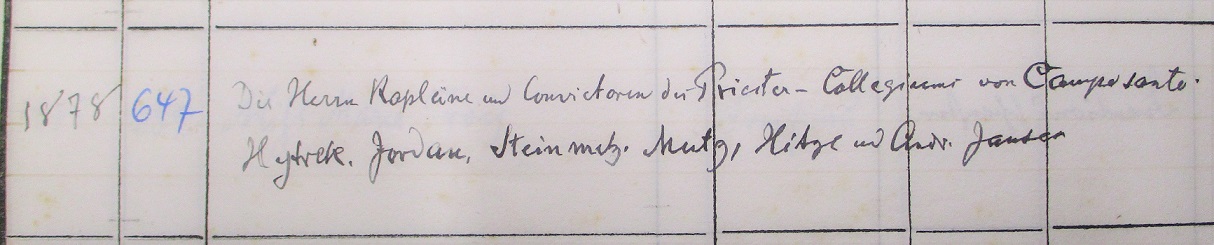 1878 647 Die Herrn Kapläne und Convictoren des Priester-Collegiums von Camposanto.
Hytrek. Jordan, Steinmetz. Mutz, Hitze und Andr. Jansen